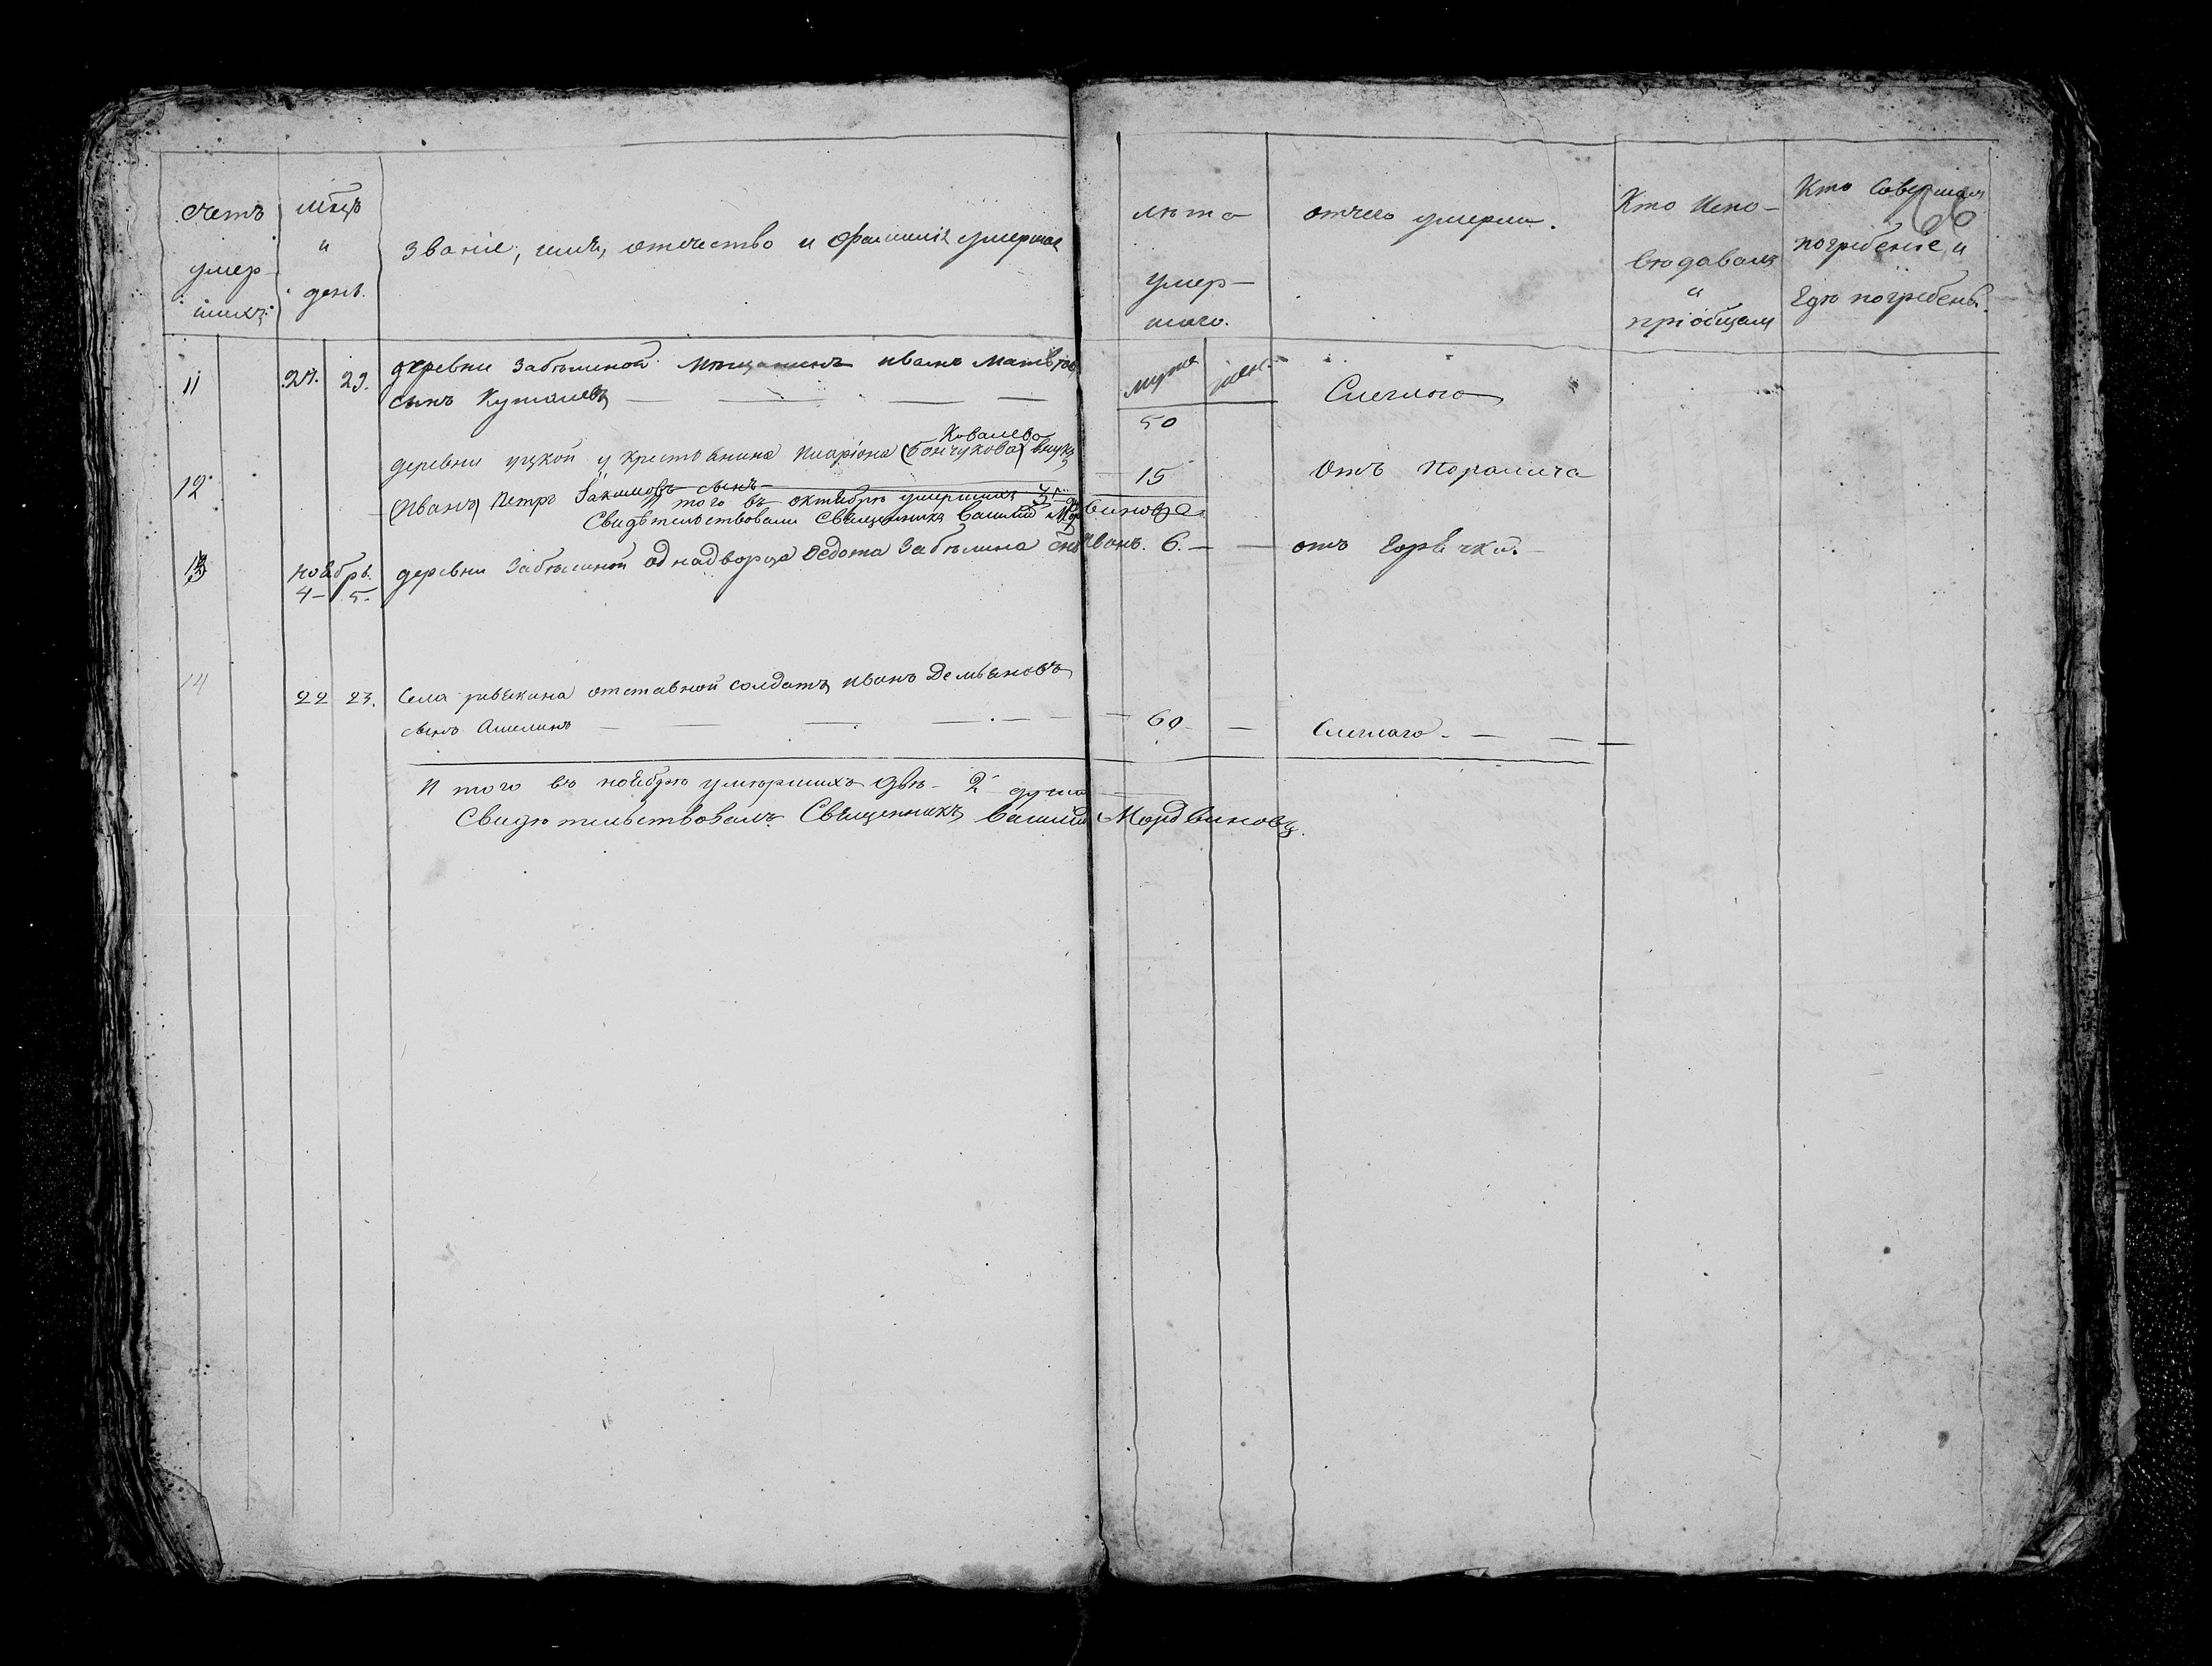 Счетъ умер- шихъ:
Мѣсцъ и день.
Званіе, имя, отечество и фамиліи умершаго
Лѣта умер- шаго.
отчего умерли.
Кто Испо- вѣдавалъ и пріобщалъ
Кто Совершалъ погребеніе, и Гдѣ погребены.
муже жен.
11 27. 29. деревни Забѣлиной Мещанинъ иванъ Матвѣевъ
сынъ Куталевъ 50 Смеглого
Ковалева
12 деревни у крестьянина Иларіона (Бойчукова) внукъ 15 Отъ Поралича
(Иванъ) Петръ Іакимовъ сынъ
И того въ октябрѣ умершихъ
Свидѣтельствовали Священникъ Василий Мордвиновъ
13 ноябрь. 4- 5. деревни Забѣлиной однадворца Федота Забѣлина снъ Иванъ. 6. — — отъ Горячки. —
14 22 23. Села отставной солдатъ иванъ Демьяновъ
сынъ Амелинъ — 60 — Смеглаго. —
И того въ ноябрѣ умершихъ двѣ - 2 души
Свидѣтельствовалъ Священникъ Василий Мордвиновъ.